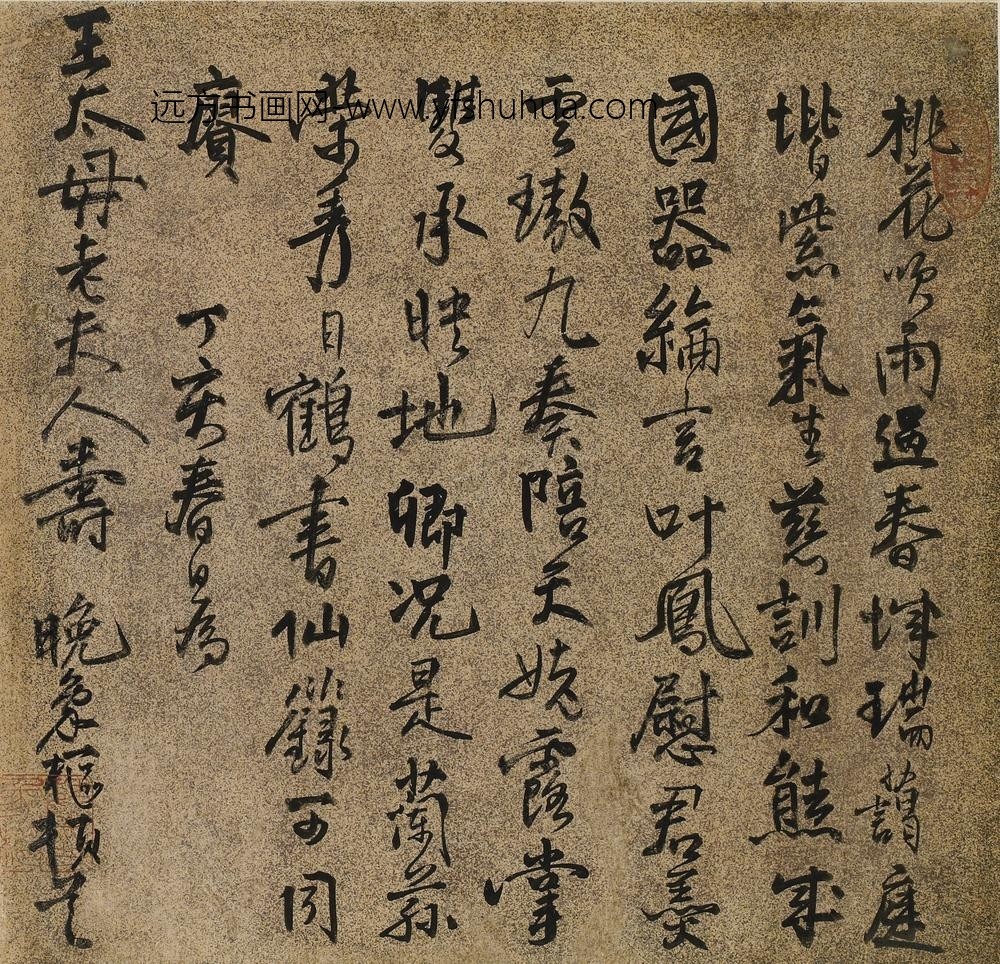 远方书画网-www.yfshuhua.com
桃花吹雨過春城瑞藹庭
堦紫氣生慈訓和熊成
國器綸言叶鳳慰君羹
雲璈九奏陪天姥露掌
雙承映地卿况是蘭蓀
榮秀日鶴書仙籙可同
賡
丁亥春日為
王太母老夫人壽 晚象樞頓首